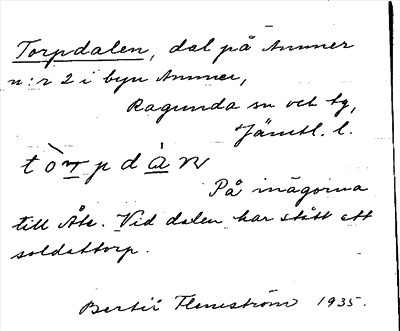 Torpdalen, dal på Ammer
n:r 2 i byn Ammer,
Ragunda sn och tg,
Jämtl. l.
tòrpdàn
På inägorna
till Åke. Vid dalen har stått ett
soldattorp.
Bertil Flemström 1935.